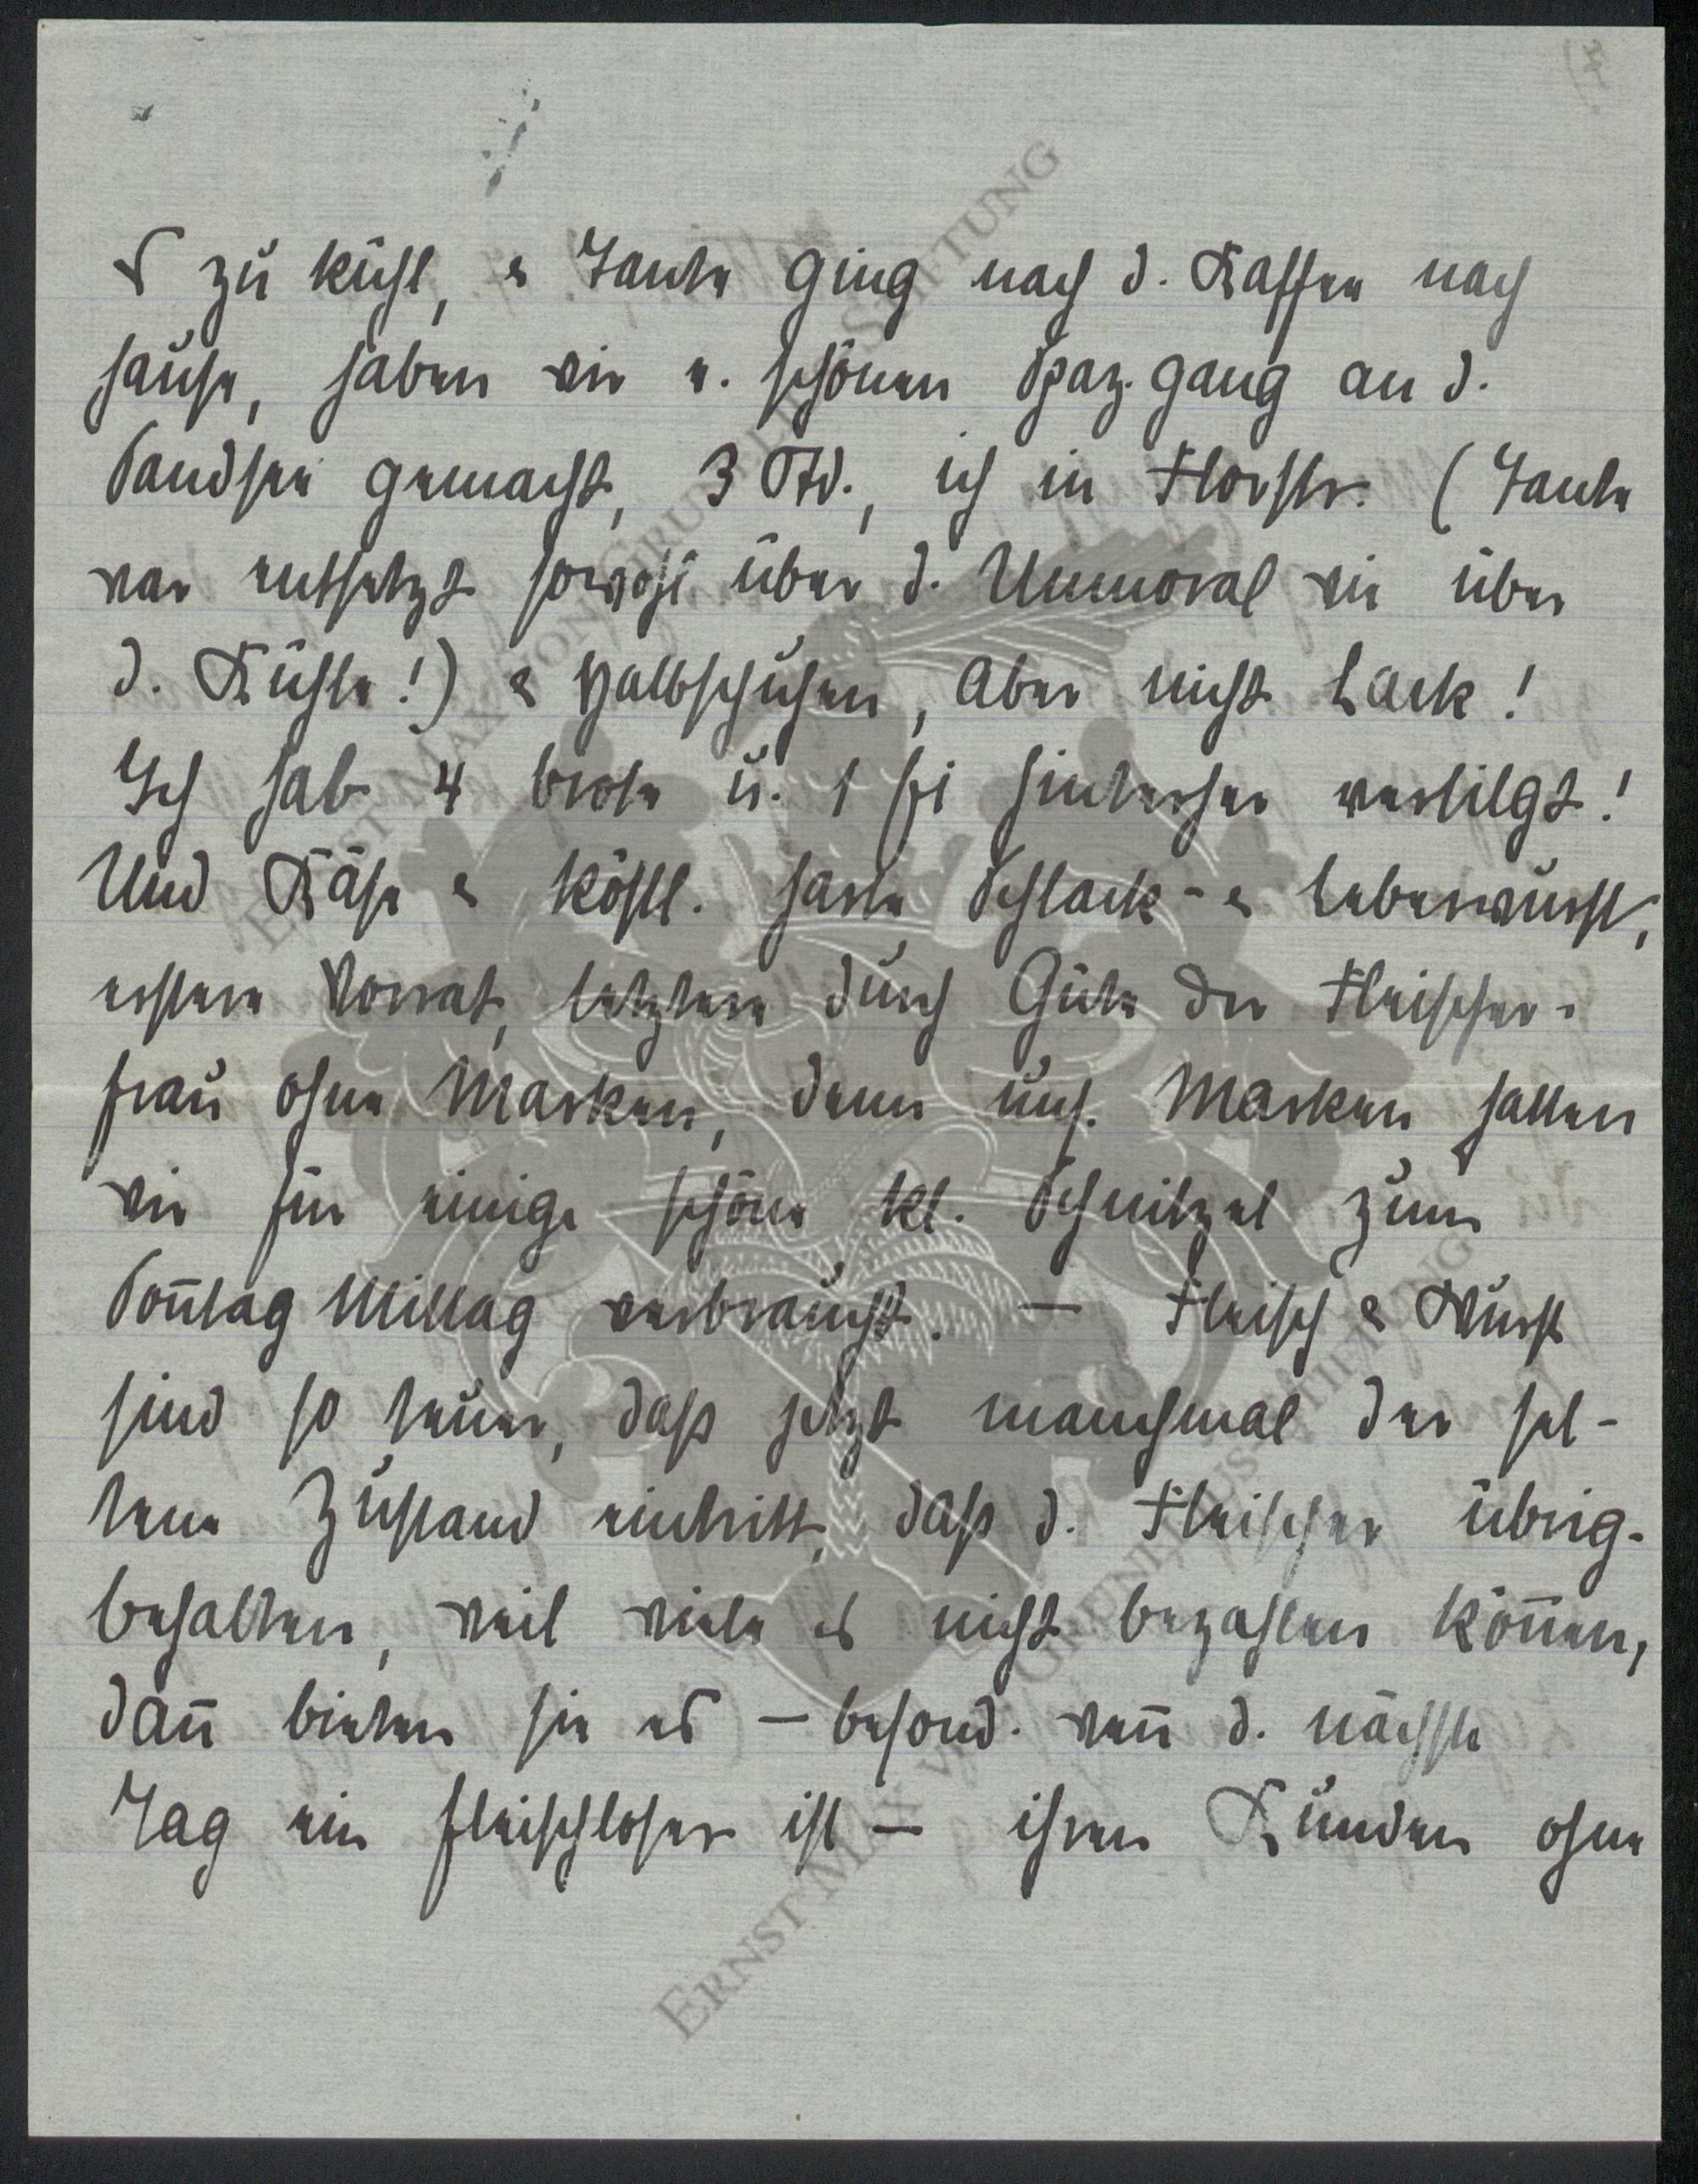 s zu kühl, & Tante ging nach d. Kaffee nach
hause, haben wir e. schönen Spaz.gang an d.
Sandsee gemacht, 3 Std., ich in Florstr. (Tante
war entsetzt sowohl über d. Unmoral wie über
d. Kühle!) & Halbschuhen, aber nicht Lack!
Ich hab 4 brote u. 1 Ei hinterher vertilgt!
Und Käse & köstl. harte Schlack- & Leberwurst,
erstere Vorrat, letztere durch Güte der Fleischer-
frau ohne Marken, denn uns. Marken hatten
wir für einige schöne kl. Schnitzel zum
Sonntag Mittag verbraucht. — Fleisch & Wurst
sind so teuer, dass jetzt manchmal der sel-
tene Zustand eintritt, dass d. Fleischer übrig-
behalten, weil viele es nicht bezahlen können,
dann bieten sie es — besond. wenn d. nächste
Tag ein fleischloser ist — ihren Kunden ohne
ERNST MAX VON GRUNELIUS-STIFTUNG
ERNST MAX VON GRUNELIUS-STIFTUNG